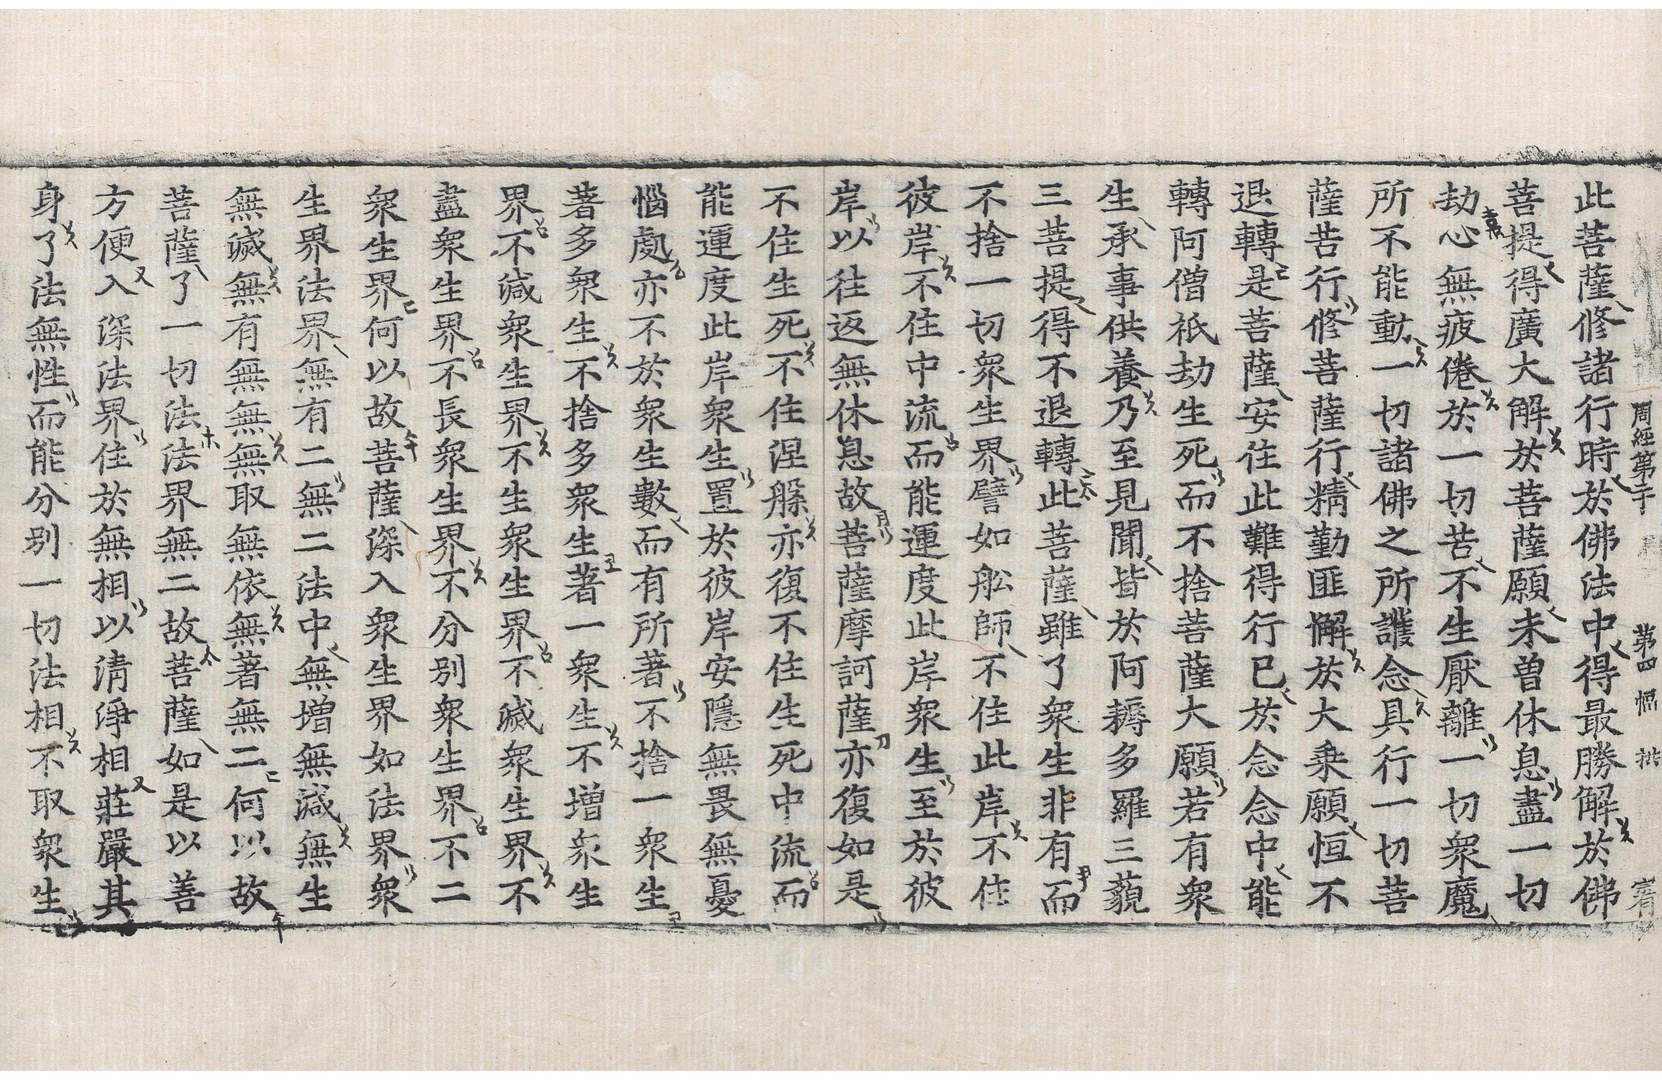 周經第二十 第四幅
此菩薩修諸行時於佛法中得最勝解於佛
菩提得廣大解於菩薩願未曾休息盡一切
劫心無疲倦於一切苦不生厭離一切衆魔
所不能動一切諸佛之所護念具行一切菩
薩苦行修菩薩行精勤匪懈於大乘願恒不
退轉是菩薩安住此難得行已於念念中能
轉阿僧祇劫生死而不捨菩薩大願若有衆
生承事供養乃至見聞皆於阿耨多羅三藐
三菩提得不退轉此菩薩雖了衆生非有而
不捨一切衆生界譬如舩師不住此岸不住
彼岸不住中流而能運度此岸衆生至於彼
岸以往返無休息故菩薩摩訶薩亦復如是
不住生死不住涅槃亦復不住生死中流而
能運度此岸衆生置於彼岸安隱無畏無憂
惱處亦不於衆生數而有所著不捨一衆生
著多衆生不捨多衆生著一衆生不增衆生
界不減衆生界不生衆生界不滅衆生界不
盡衆生界不長衆生界不分別衆生界不二
衆生界何以故菩薩深入衆生界如法界衆
生界法界無有二無二法中無增無減無生
無滅無有無無無取無依無著無二何以故
菩薩了一切法法界無二故菩薩如是以善
方便入深法界住於無相以清淨相莊嚴其
身了法無性而能分別一切法相不取衆生